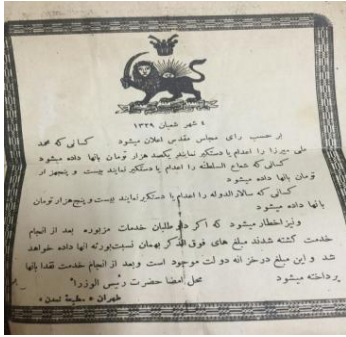 ٤ شهر شعبان ١٣٢٩
بر حسب رای مجلس مقدس اعلان میشود کسانی که محمد
علی میرزا را اعدام یا دستگیر نمایند یکصد هزار تومان بانها داده میشود
کسانی که شعاع السلطنه را اعدام یا دستگیر نمایند بیست و پنجهزار
تومان بانها داده میشود
کسانی که سالار الدوله را اعدام یا دستگیر نمایند بیست و پنج هزار تومان
بانها داده میشود
ونیز اخطار میشود که اگر داوطلبان خدمات مزبوره بعد از انجام
خدمت کشته شدند مبلغ های فوق الذکر بهمان نسبت بورثه انها داده خواهد
شد و این مبلغ در خزانه دولت موجود است وبعد از انجام خدمت نقدا بانها
پرداخته میشود
محل امضا حضرت رئیس الوزرا
طهران * مطبعهٔ تمدن *